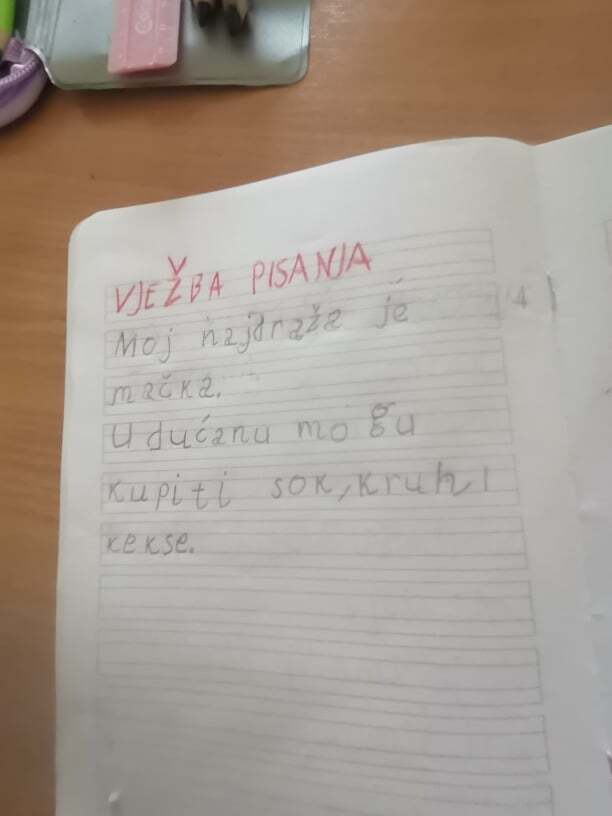 VJEŽBA PISANJA
Moj najdraže je
mačka.
U dućanu mogu
kupiti sok, kruh i
kekse.